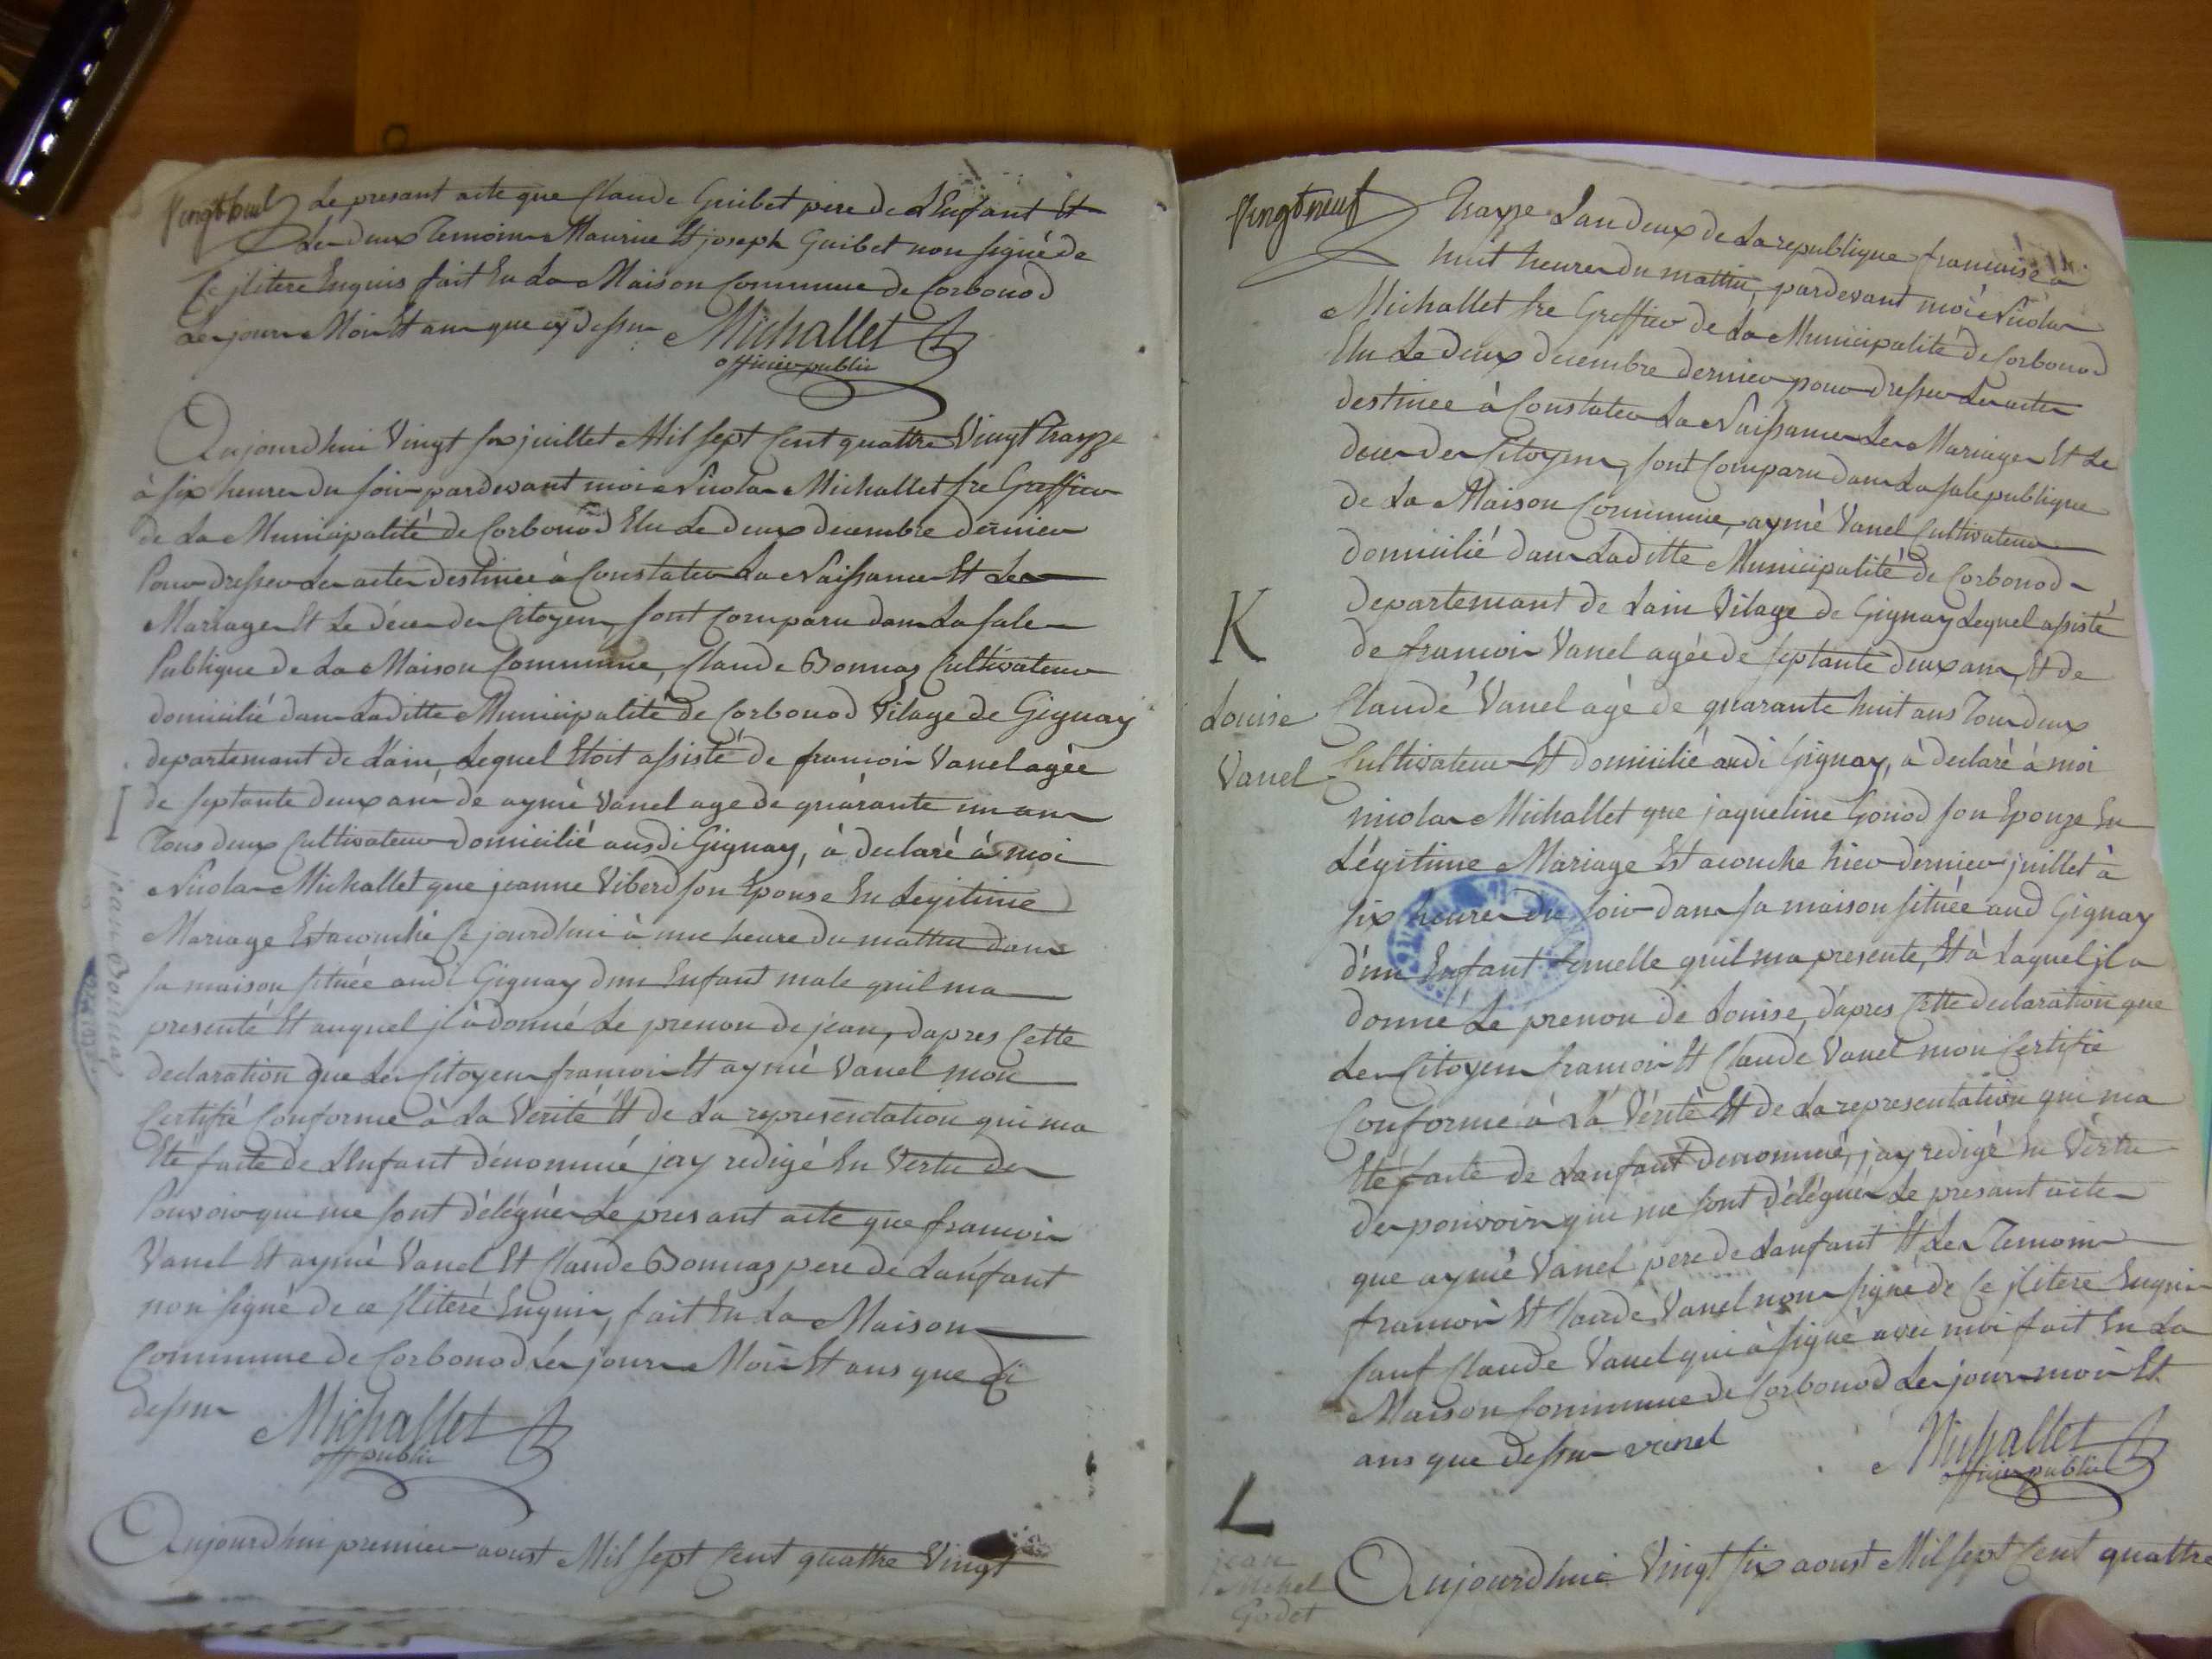 vingt huit
Le presant acte que Claude Guibet pere de L'Enfant Et
Les deux Temoins Maurice Et joseph Guibet non signé de
Ce jlitere Enquis fait En La Maison Commune de Corbonod
Les jour Mois Et an que cy dessus Michallet
officier public
Aujourdhui Vingt six juillet Mil sept Cent quattre Vingt Trayze
à six heures du soir pardevant moi Nicolas Michallet sre Greffier
de La Municipalité de Corbonod Elu Le deux decembre dernier
Pour dresser Les actes destinée à Constater La Naissance Et Les
Mariages Et Le décès des Citoyens, sont Comparu dans La sale
Publique de La Maison Commune, Claude Bonnaz Cultivateur
domicilié dans Laditte Municipalité de Corbonod Vilage de Gignay
departemant de Lain, Lequel Etoit assisté de francois Vanel agée
de septante deux ans de aymé Vanel age de quarante un ans
Tous deux Cultivateur domicilié ausdi Gignay, à declaré à moi
Nicolas Michallet que jeanne Viberd son Epouse En Legitime
Mariage Est acouché Ce jourdhui à une heure du mattin dans
sa maison située audi Gignay dun Enfant male quil ma
presenté Et auquel jl à donné Le prenon de jean, dapres Cette
declaration que Les Citoyens francois Et aymé Vanel mon
Certifié Conforme à La Verité Et de La representation qui ma
Eté faite de L'Enfant dénommé jay redigé En Vertu des
Pouvoirs qui me sont délégués Le presant acte que francois
Vanel Et aymé Vanel Et Claude Bonnaz pere de Lanfant
non signé de ce jliteré Enquis, fait En La Maison
Commune de Corbonod Les jours Mois Et ans que Ci
dessus
Michallet
off public
Aujourdhui premier aoust Mil sept Cent quattre Vingt
jean Bonnaz
vingt neuf
Trayze Lan deux de La republique francaise à
huit heures du mattin, pardevant moi Nicolas
Michallet sre Greffier de La Municipalité de Corbonod
Elu Le deux decembre dernier pour dresser Les actes
destinee à Constater La Naissance Les Mariages Et Le
deces des Citoyens, sont Comparu dans La sale publique
de La Maison Commune, aymé Vanel Cultivateur
domicilié dans Laditte Municipalité de Corbonod
departemant de Lain Vilage de Gignay Lequel assisté
de francois Vanel agée de septante deux ans, Et de
Claude Vanel agé de quarante huit ans Tous deux
Cultivateur Et domicilié audi Gignay, à declaré à moi
nicolas Michallet que jaqueline Gonod son Epouze En
Légitime Mariage Est acouche hier dernier juillet à
six heures du soir dans sa maison située aud Gignay
d'un Enfant femelle quil ma presente, Et à Laquel jl a
donné Le prenon de Louise, d'apres Cette declaration que
Les Citoyens francois Et Claude Vanel mon Certifié
Conforme à La Vérité Et de La representation qui ma
Eté faite de Lanfant denommé, jay redigé En Vertu
des pouvoirs qui me sont délégués Le presant acte
que aymé Vanel pere de Lanfant Et Les Temoins
francois Et Claude Vanel non signé de Ce jlitere Enquis
sauf Claude Vanel qui à signé avec moi fait En La
Maison Commune de Corbonod Les jours mois Et
ans que dessus vanel
Michallet
officier public
Aujourdhui Vingt six aoust Mil sept Cent quattre
K
Louise
Vanel
L
jean
Michel
Godet